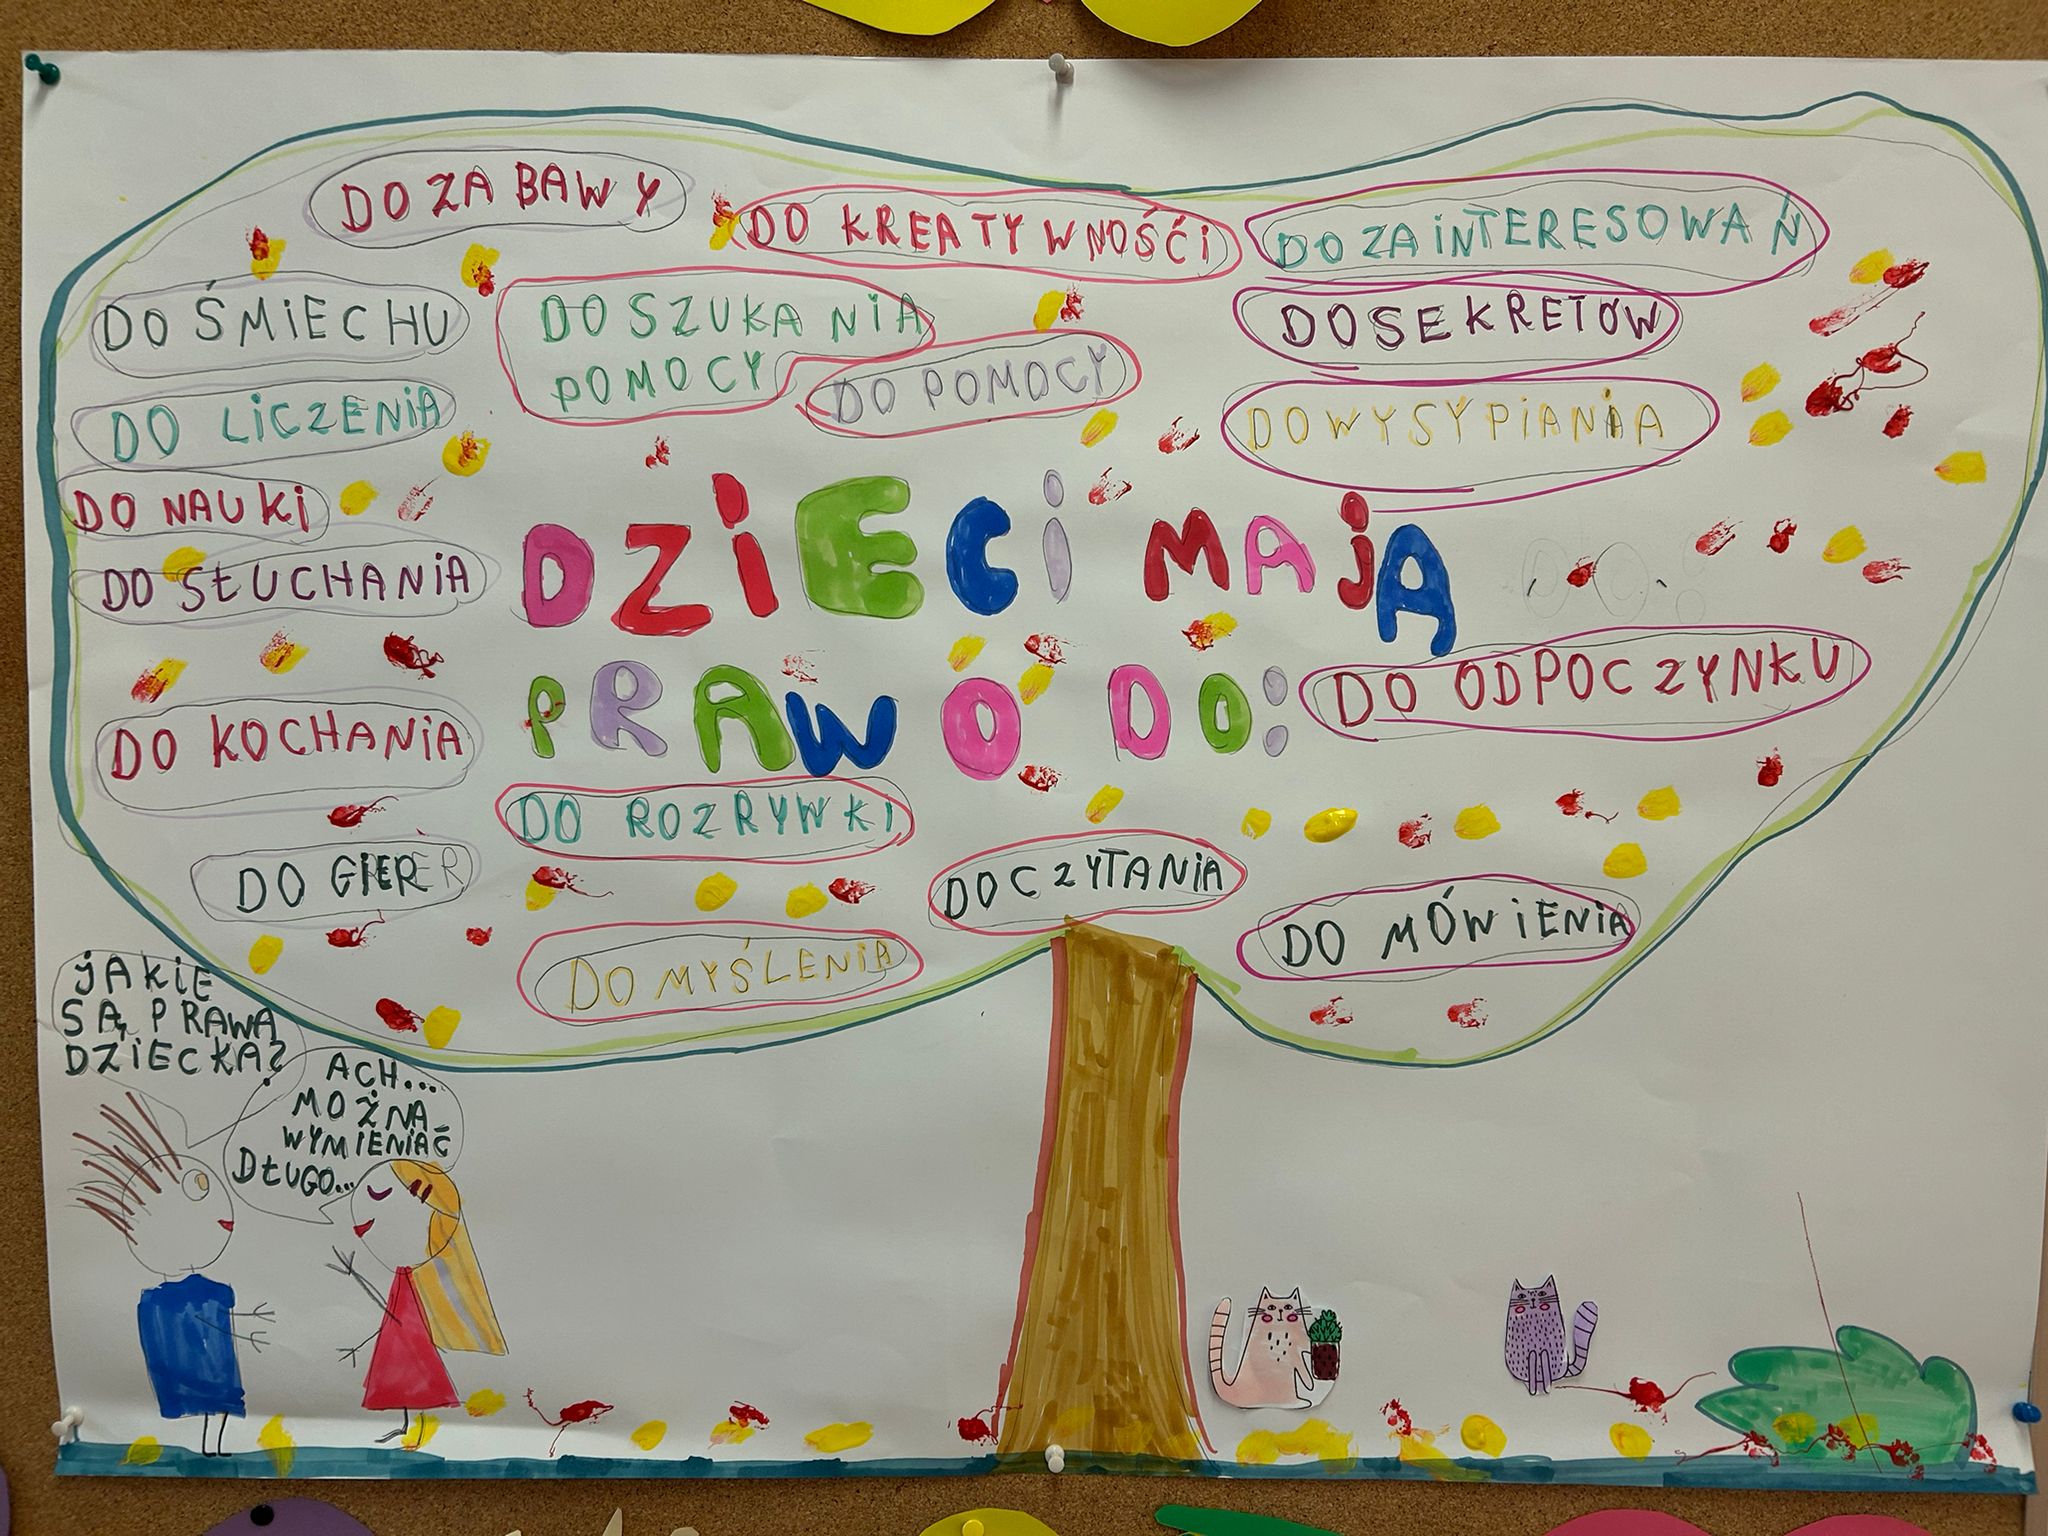 DO ZABAWY
DO KREATYWNOŚĆI
DO ZAINTERESOWAŃ
DO ŚMIECHU
DO SZUKANIA
POMOCY
DO POMOCY
DO SEKRETÓW
DO LICZENIA
DO WYSYPIANIA
DO NAUKI
DO SŁUCHANIA
DZIECI MAJĄ
DO:
PRAWO DO:
DO ODPOCZYNKU
DO KOCHANIA
DO ROZRYWKI
DO GIER
DO CZYTANIA
DO MÓWIENIA
DO MYŚLENIA
JAKIE
SĄ PRAWA
DZIECKA?
ACH...
MOŻNA
WYMIENIAĆ
DŁUGO...